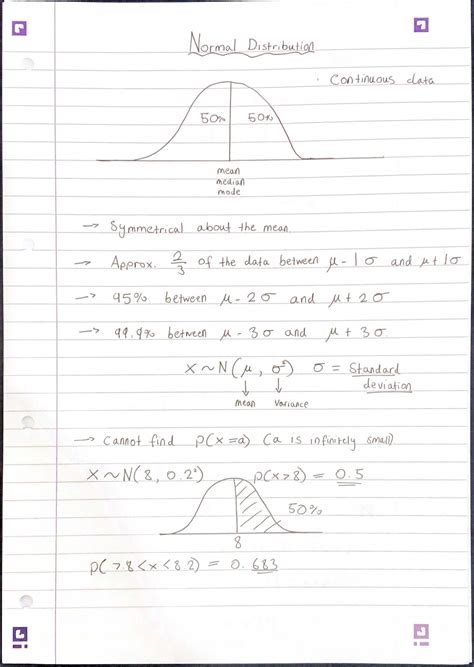 Normal Distribution
· Continuous data
50% 50%
mean
median
mode
→ Symmetrical about the mean.
→ Approx. 2/3 of the data between μ - 1σ and μ + 1σ
→ 95% between μ - 2σ and μ + 2σ
→ 99.9% between μ - 3σ and μ + 3σ.
X ~ N(μ, σ²) σ = Standard deviation
mean Variance
→ Cannot find P(X = a) (a is infinitely small)
X ~ N(8, 0.2²) P(X > 8) = 0.5
50%
8
P(7.8 < X < 8.2) = 0.683